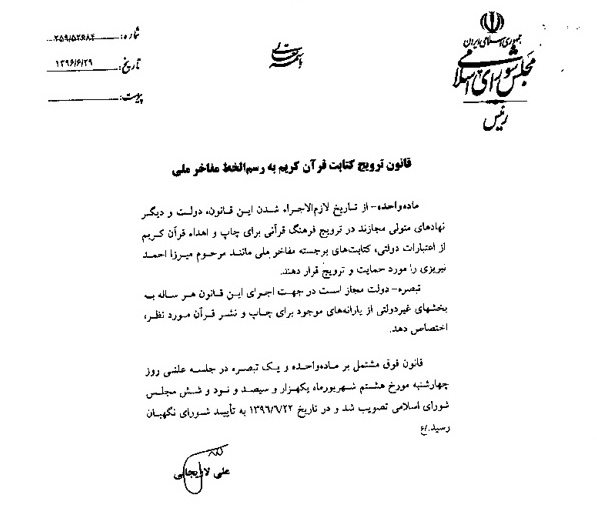 جمهوری اسلامی ایران
مجلس شورای اسلامی
رئیس
باسمه تعالی
شماره:
تاریخ: ۱۳۹۶/۶/۲۹
پیوست:
قانون ترویج کتابت قرآن کریم به رسم‌الخط مفاخر ملی
ماده‌واحده- از تاریخ لازم‌الاجراء شدن این قانون، دولت و دیگر
نهادهای متولی مجازند در ترویج فرهنگ قرآنی برای چاپ و اهداء قرآن کریم
از اعتبارات دولتی، کتابت‌های برجسته مفاخر ملی مانند مرحوم میرزا احمد
نیریزی را مورد حمایت و ترویج قرار دهند.
تبصره- دولت مجاز است در جهت اجرای این قانون هر ساله به
بخشهای غیردولتی از یارانه‌های موجود برای چاپ و نشر قرآن مورد نظر،
اختصاص دهد.
قانون فوق مشتمل بر ماده‌واحده و یک تبصره در جلسه علنی روز
چهارشنبه مورخ هشتم شهریورماه یکهزار و سیصد و نود و شش مجلس
شورای اسلامی تصویب شد و در تاریخ ۱۳۹۶/۶/۲۲ به تأیید شورای نگهبان
رسید./ع
علی لاریجانی